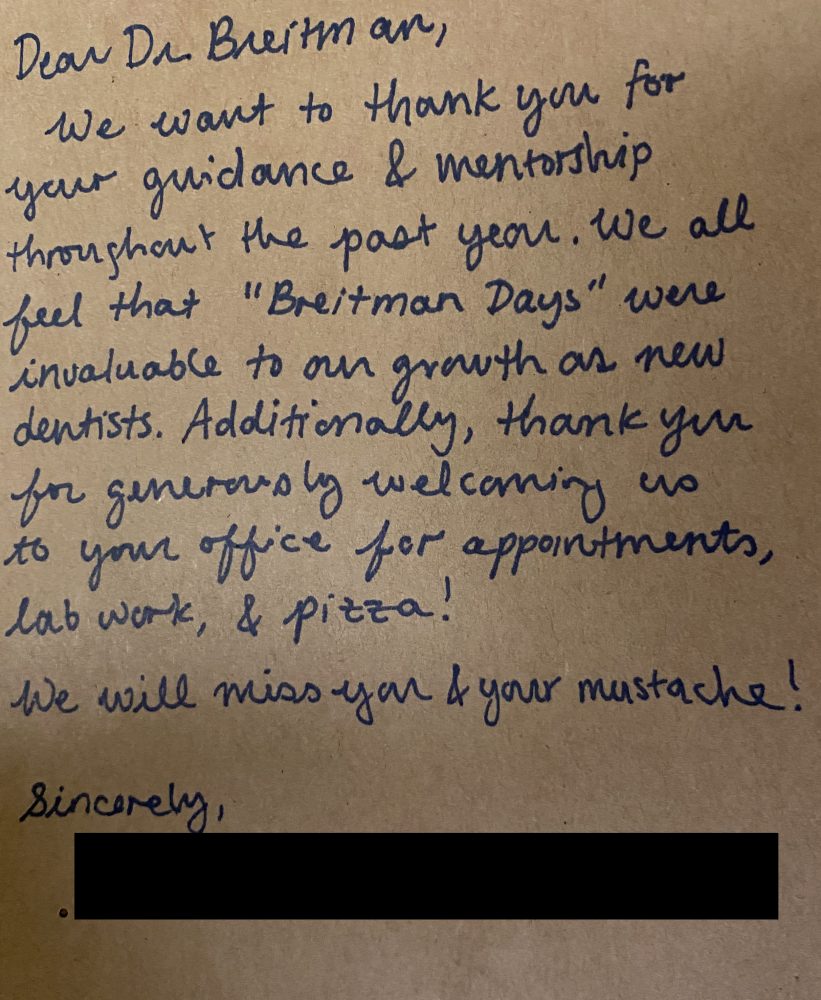 Dear Dr. Breitman,
We want to thank you for
your guidance & mentorship
throughout the past year. We all
feel that "Breitman Days" were
invaluable to our growth as new
dentists. Additionally, thank you
for generously welcoming us
to your office for appointments,
lab work, & pizza!
We will miss you & your mustache!
Sincerely,